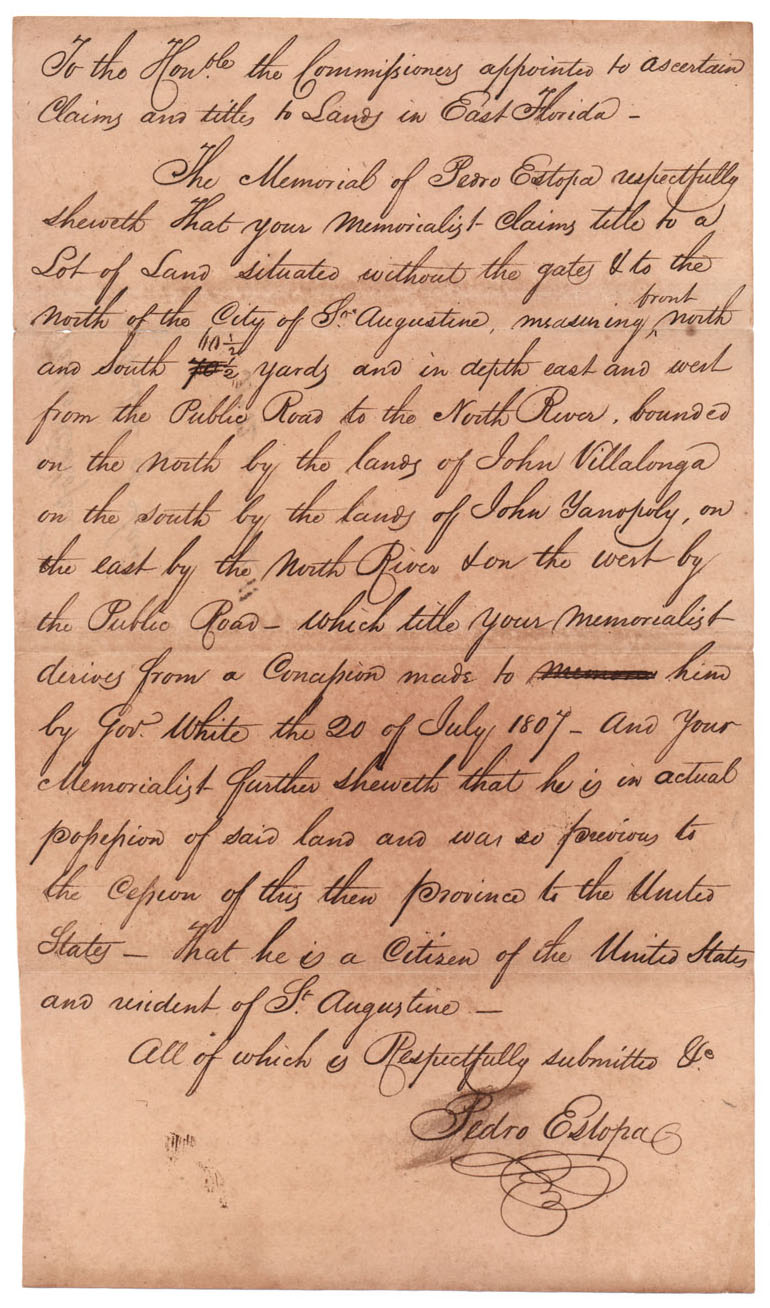 To the Honble the Commissioners appointed to ascertain
Claims and titles to Lands in East Florida –
The Memorial of Pedro Estopa respectfully
sheweth That your Memorialist Claims title to a
Lot of Land situated without the gates & to the
front
north of the City of St. Augustine, measuring ^ north
and South yards and in depth east and west
from the Public Road to the North River, bounded
on the north by the lands of John Villalonga
on the south by the lands of John Yanopoly, on
the east by the North River & on the west by
the Public Road – which title your memorialist
derives from a Concession made to him
by Gov. White the 20 of July 1807 – And Your
Memorialist further sheweth that he is in actual
possession of said land and was so previous to
the Cession of this then province to the United
States – That he is a Citizen of the United States
and resident of St. Augustine –
All of which is Respectfully submitted &c
Pedro Estopa